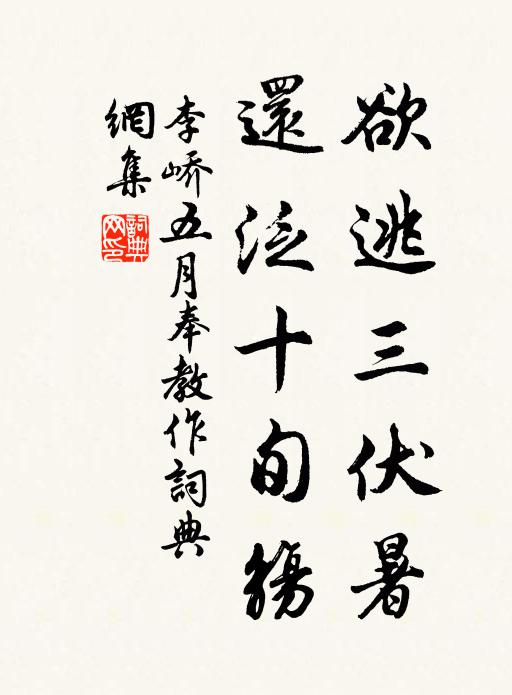 欲逃三伏暑
還泛十旬觴
李嶠五月奉教作詞典
網集
詞典
网印